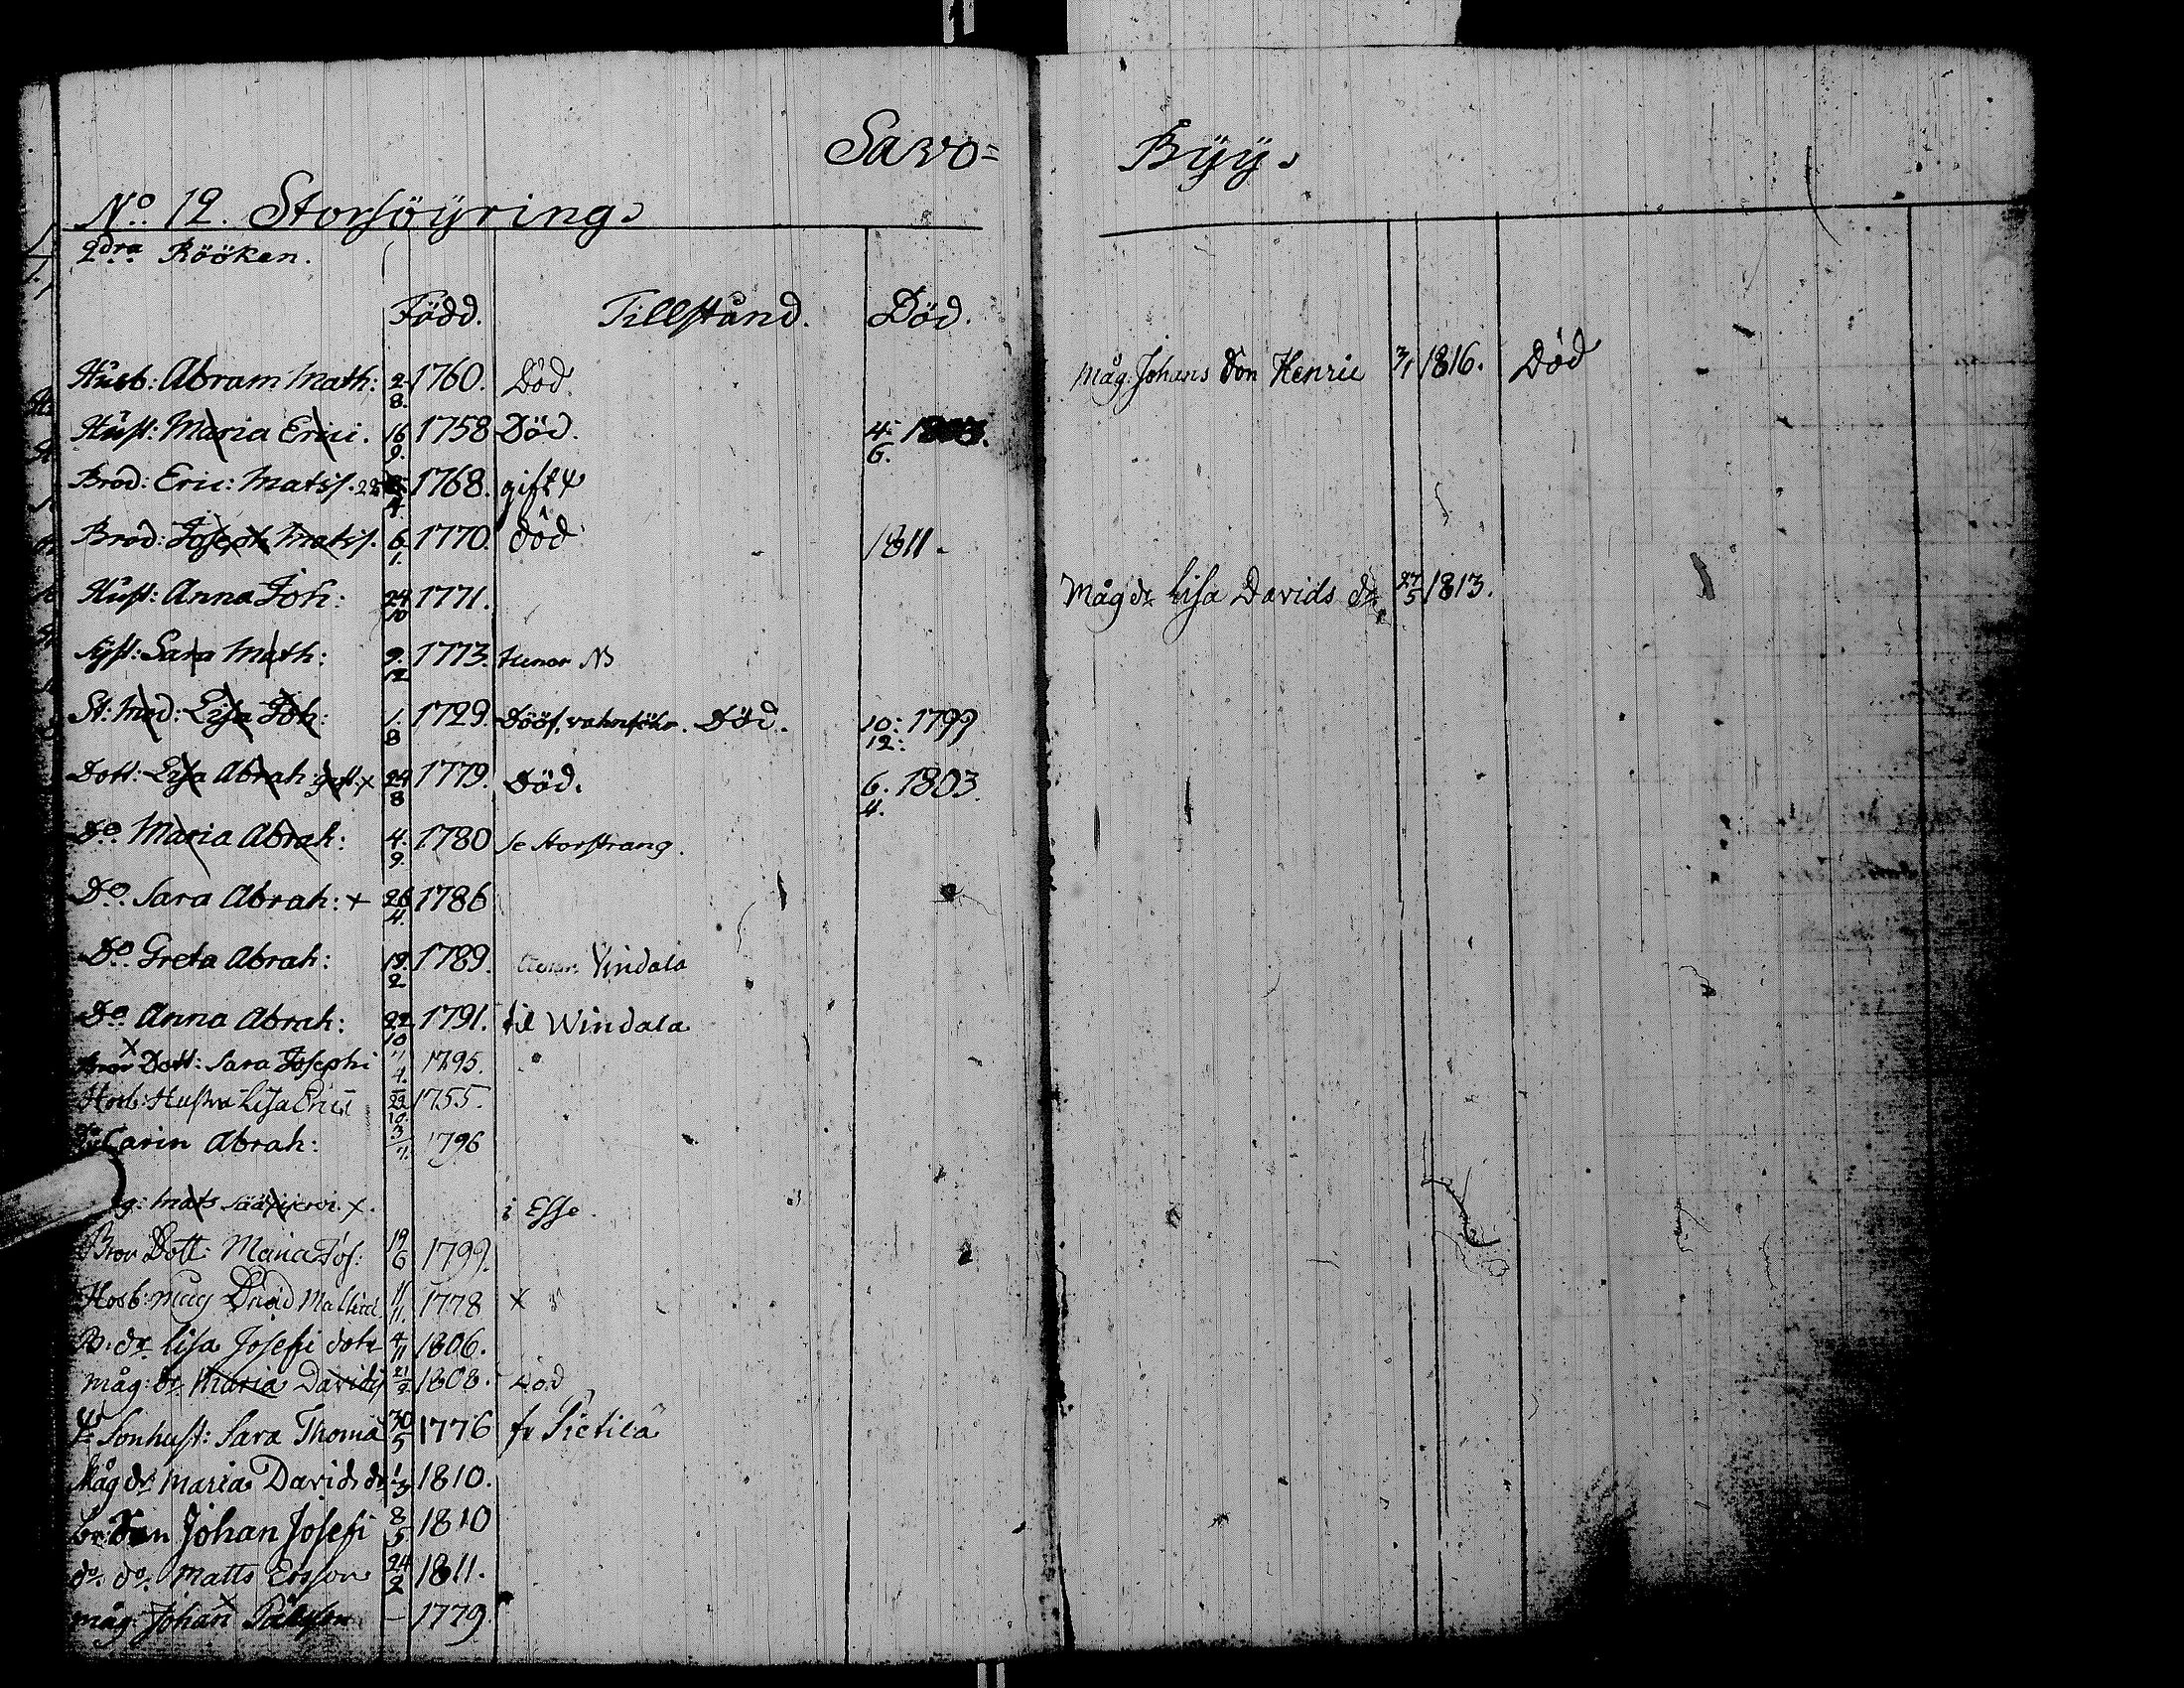 Savo=
Byy.
No. 12. Storsöyring.
2dra Rööken.
Född. Tillstånd. Död.
Husb: Abram Math: 2/8. 1760. Död.
Hust: Maria Erici. 16/9. 1758 Död. 4/6.
Brod: Eric: Matss. 1768. gift
Brod: Joseph Matss. 6/1. 1770. död 1811.
Hust: Anna Joh: 24/10 1771.
Syst: Sara Math: 9./12 1773.
St: Mod: Lisa Joh: 1./8 1729. Dööf, vahnföhr. Död. 10:/12: 1799
Dott: Lisa Abrah: gift x 24/8 1779. Död. 6./4. 1803.
Do. Maria Abrah: 4./9. 1780 se storstrang.
Do. Sara Abrah: + 26/4. 1786
Do. Greta Abrah: 19./2 1789. Vindala
Do. Anna Abrah: 22/10 1791. til Windala
x Dott: Sara Josephi 1795.
Hosb: Hustru Lisa Erici 22/10. 1755.
Carin Abrah: 3/7. 1796
Mats x. i Esse.
Bror Dott: Maria Jos: 19/6 1799.
Hosb: mag David 11/11. 1778 x
B: dr. Lisa Josefi dotr 4/11 1806.
Måg: dr. Maria Davids 21/2. 1808. Död
Sonhust: Sara Thoma 30/5 1776 fr Pietilä
Måg dr. Maria Davids dr 1/3 1810.
br. Son Johan Josefi 8/5 1810
do. do. Matts Ersson 24/2 1811.
måg. Johan x — 1779.
Måg: Johans Son Henric 3/1 1816. Död
Måg dr. Lisa Davids dr. 27/5 1813.